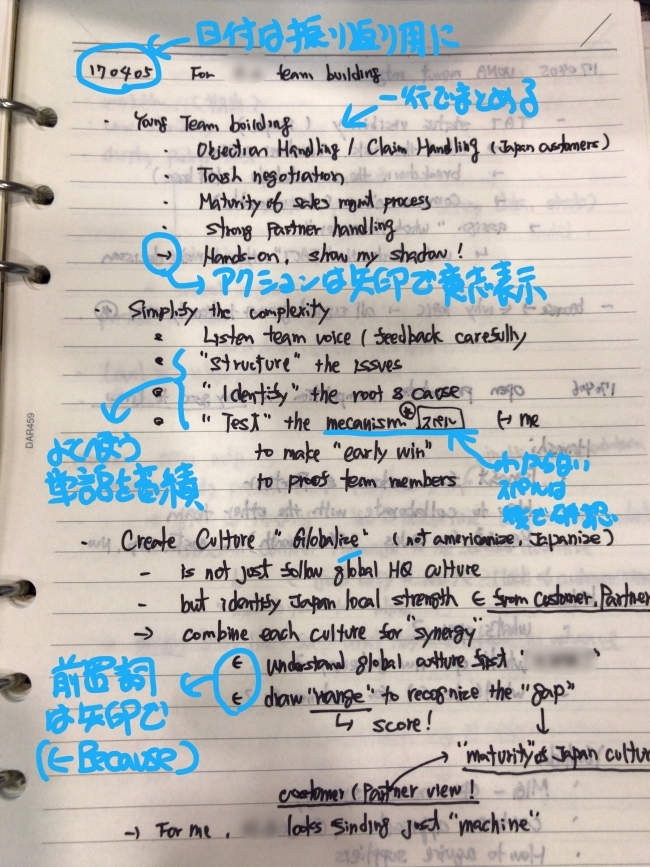 日付は振り返り用に
170405 For team building
一行でまとめる
・ Young Team building
・ Objection Handling / Claim Handling (Japan customers)
・ Tough negotiation
・ Maturity of sales mgmt process
・ Strong Partner handling
→ Hands-on, show my shadow!
アクションは矢印で意志表示
・ Simplify the complexity
・ Listen team voice / feedback carefully
・ "Structure" the issues
・ "Identify" the root & cause
・ "Test" the mecanism* スペル ↦ me
to make "early win"
to proof team members
よく使う
単語を蓄積
わからない
スペルは
後で確認
- Create Culture "Globalize" (not americanize, Japanize)
- is not just follow global HQ culture
- but identify Japan local strength ∈ from customer, Partner
→ combine each culture for "synergy"
∈ understand global culture first
∈ draw "range" to recognize the "gap"
↳ score!
前置詞
は矢印で
(← Because)
"maturity" of Japan culture
customer / Partner view!
→ For me, looks just "machine"
DAR459